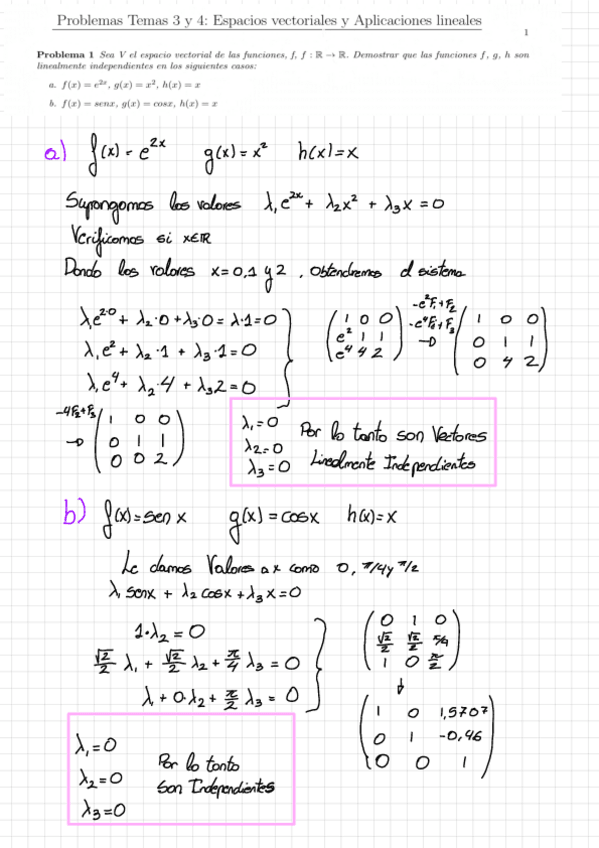 Problemas Temas 3 y 4: Espacios vectoriales y Aplicaciones lineales
1
Problema 1 Sea V el espacio vectorial de las funciones, f, f : ℝ → ℝ. Demostrar que las funciones f, g, h son
linealmente independientes en los siguientes casos:
a. f(x) = e^{2x}, g(x) = x², h(x) = x
b. f(x) = senx, g(x) = cosx, h(x) = x
a) f(x) = e^{2x} g(x) = x² h(x) = x
Supongamos los valores λ₁e^{2x} + λ₂x² + λ₃x = 0
Verificamos si x∈ℝ
Dando los valores x=0,1 y 2, obtendremos el sistema
λ₁e^{2·0} + λ₂·0 + λ₃·0 = λ·1 = 0
λ₁e² + λ₂·1 + λ₃·1 = 0
λ₁e⁴ + λ₂·4 + λ₃2 = 0
1 0 0
e² 1 1
e⁴ 4 2
-e²F₁+F₂
-e⁴F₁+F₃
→
1 0 0
0 1 1
0 4 2
-4F₂+F₃
→
1 0 0
0 1 1
0 0 2
λ₁=0
λ₂=0
λ₃=0
Por lo tanto son Vectores
Linealmente Independientes
b) f(x)=sen x g(x)=cosx h(x)=x
Le damos Valores a x como 0, π/4 y π/2
λ₁ senx + λ₂ cosx + λ₃x = 0
1·λ₂ = 0
√2/2 λ₁ + √2/2 λ₂ + π/4 λ₃ = 0
λ₁ + 0·λ₂ + π/2 λ₃ = 0
0 1 0
√2/2 √2/2 π/4
1 0 π/2
↓
1 0 1,5707
0 1 -0,46
0 0 1
λ₁=0
λ₂=0
λ₃=0
Por lo tanto
son Independientes